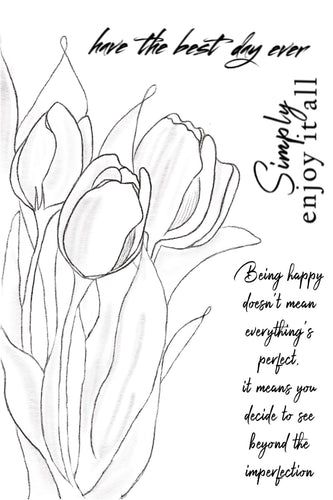 have the best day ever
Simply
enjoy it all
Being happy
doesn't mean
everything's
perfect.
it means you
decide to see
beyond the
imperfection